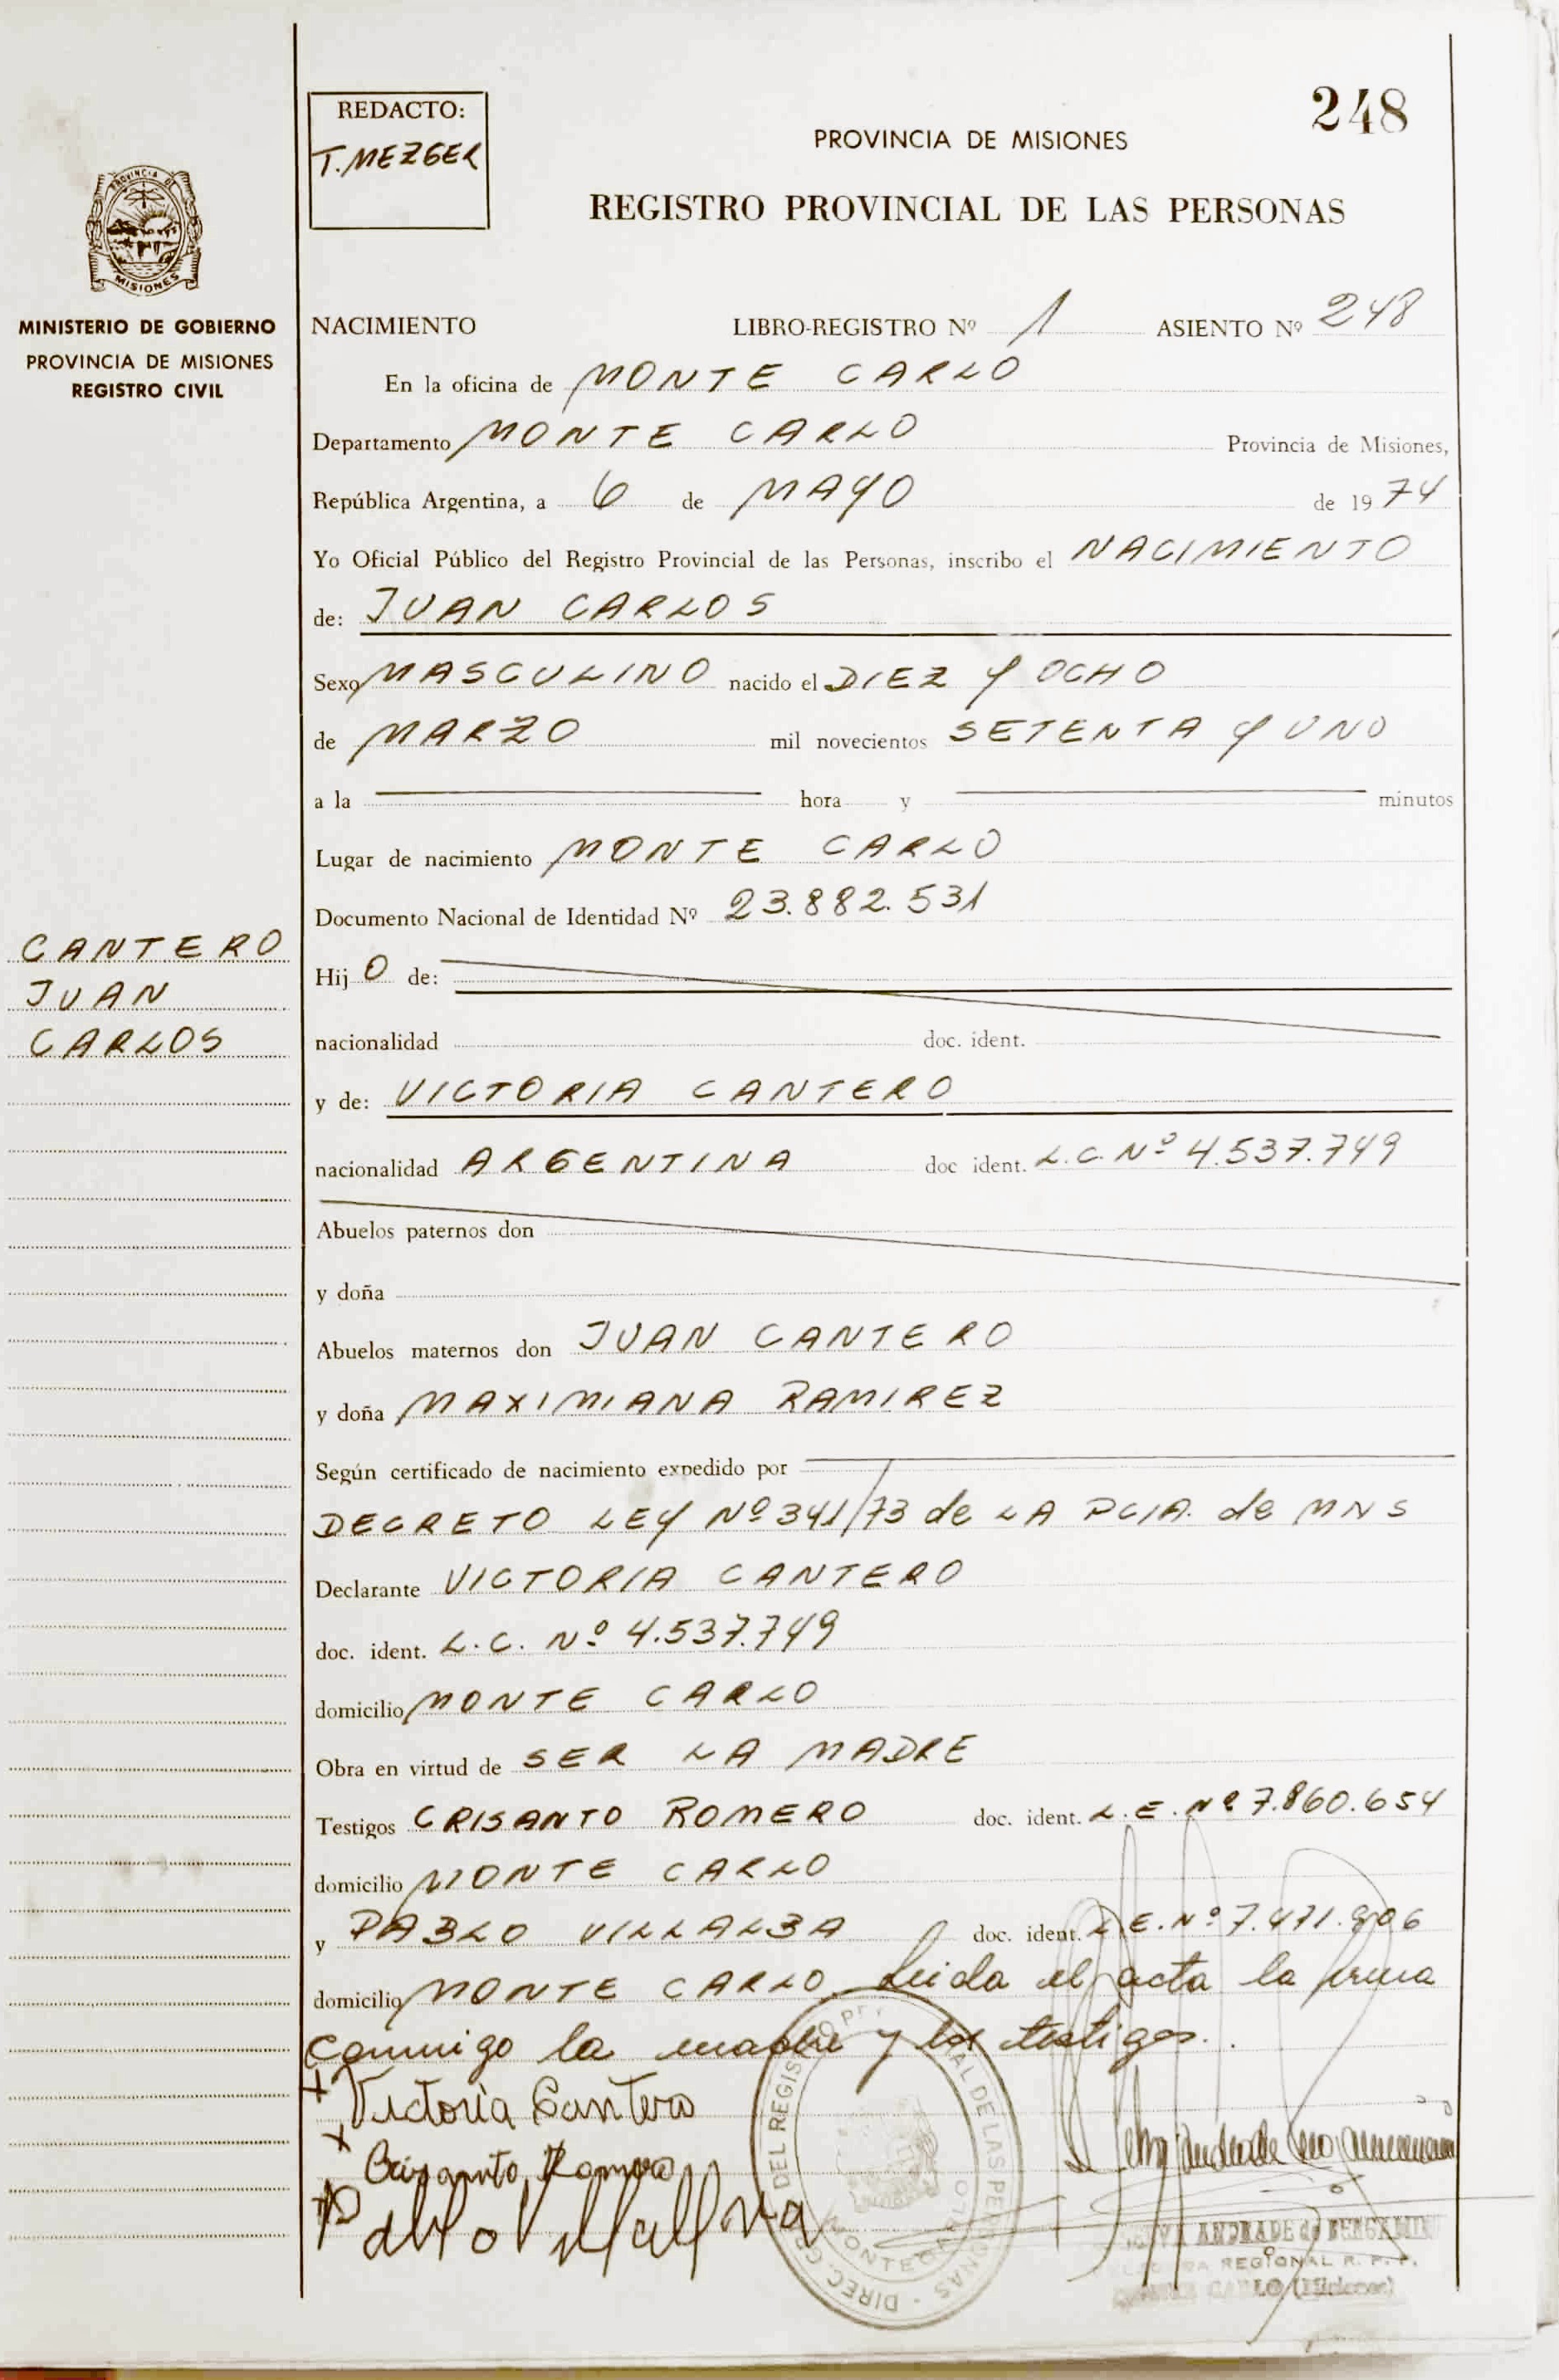 REDACTO:
T. MEZGER
248
PROVINCIA DE MISIONES
REGISTRO PROVINCIAL DE LAS PERSONAS
PROVINCIA DE
MISIONES
MINISTERIO DE GOBIERNO
PROVINCIA DE MISIONES
REGISTRO CIVIL
NACIMIENTO LIBRO-REGISTRO Nº 1 ASIENTO Nº 248
En la oficina de MONTE CARLO
Departamento MONTE CARLO Provincia de Misiones,
República Argentina, a 6 de MAYO de 1974
Yo Oficial Público del Registro Provincial de las Personas, inscribo el NACIMIENTO
de: JUAN CARLOS
Sexo MASCULINO nacido el DIEZ Y OCHO
de MARZO mil novecientos SETENTA Y UNO
a la hora y minutos
Lugar de nacimiento MONTE CARLO
Documento Nacional de Identidad Nº 23.882.531
CANTERO
JUAN
CARLOS
Hij O de:
nacionalidad doc. ident.
y de: VICTORIA CANTERO
nacionalidad ARGENTINA doc ident. L.C. Nº 4.537.749
Abuelos paternos don
y doña
Abuelos maternos don JUAN CANTERO
y doña MAXIMIANA RAMIREZ
Según certificado de nacimiento expedido por
DECRETO LEY Nº 341/73 de LA PCIA. de MNS
Declarante VICTORIA CANTERO
doc. ident. L.C. Nº 4.537.749
domicilio MONTE CARLO
Obra en virtud de SER LA MADRE
Testigos CRISANTO ROMERO doc. ident. L.E. Nº 7.860.654
domicilio MONTE CARLO
y PABLO VILLALBA doc. ident. L.E. Nº 7.471.906
domicilio MONTE CARLO. Leida el acta la firma
conmigo la madre y los testigos.
Victoria Cantero
Crisanto Romero
Pablo Villalva
DIREC. GRAL. DEL REGISTRO PROVINCIAL DE LAS PERSONAS
MONTECARLO
ANDRADE de BENGAMIN
REGIONAL R. P. P.
CARLO (Misiones)